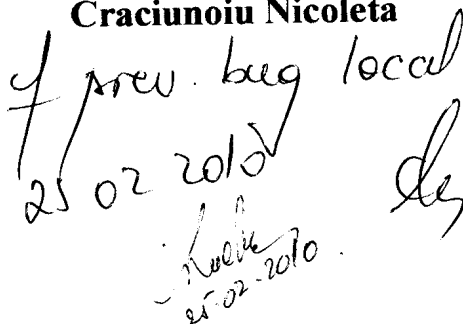 Craciunoiu Nicoleta
prev. bug local
25 02 2010
25-02-2010.